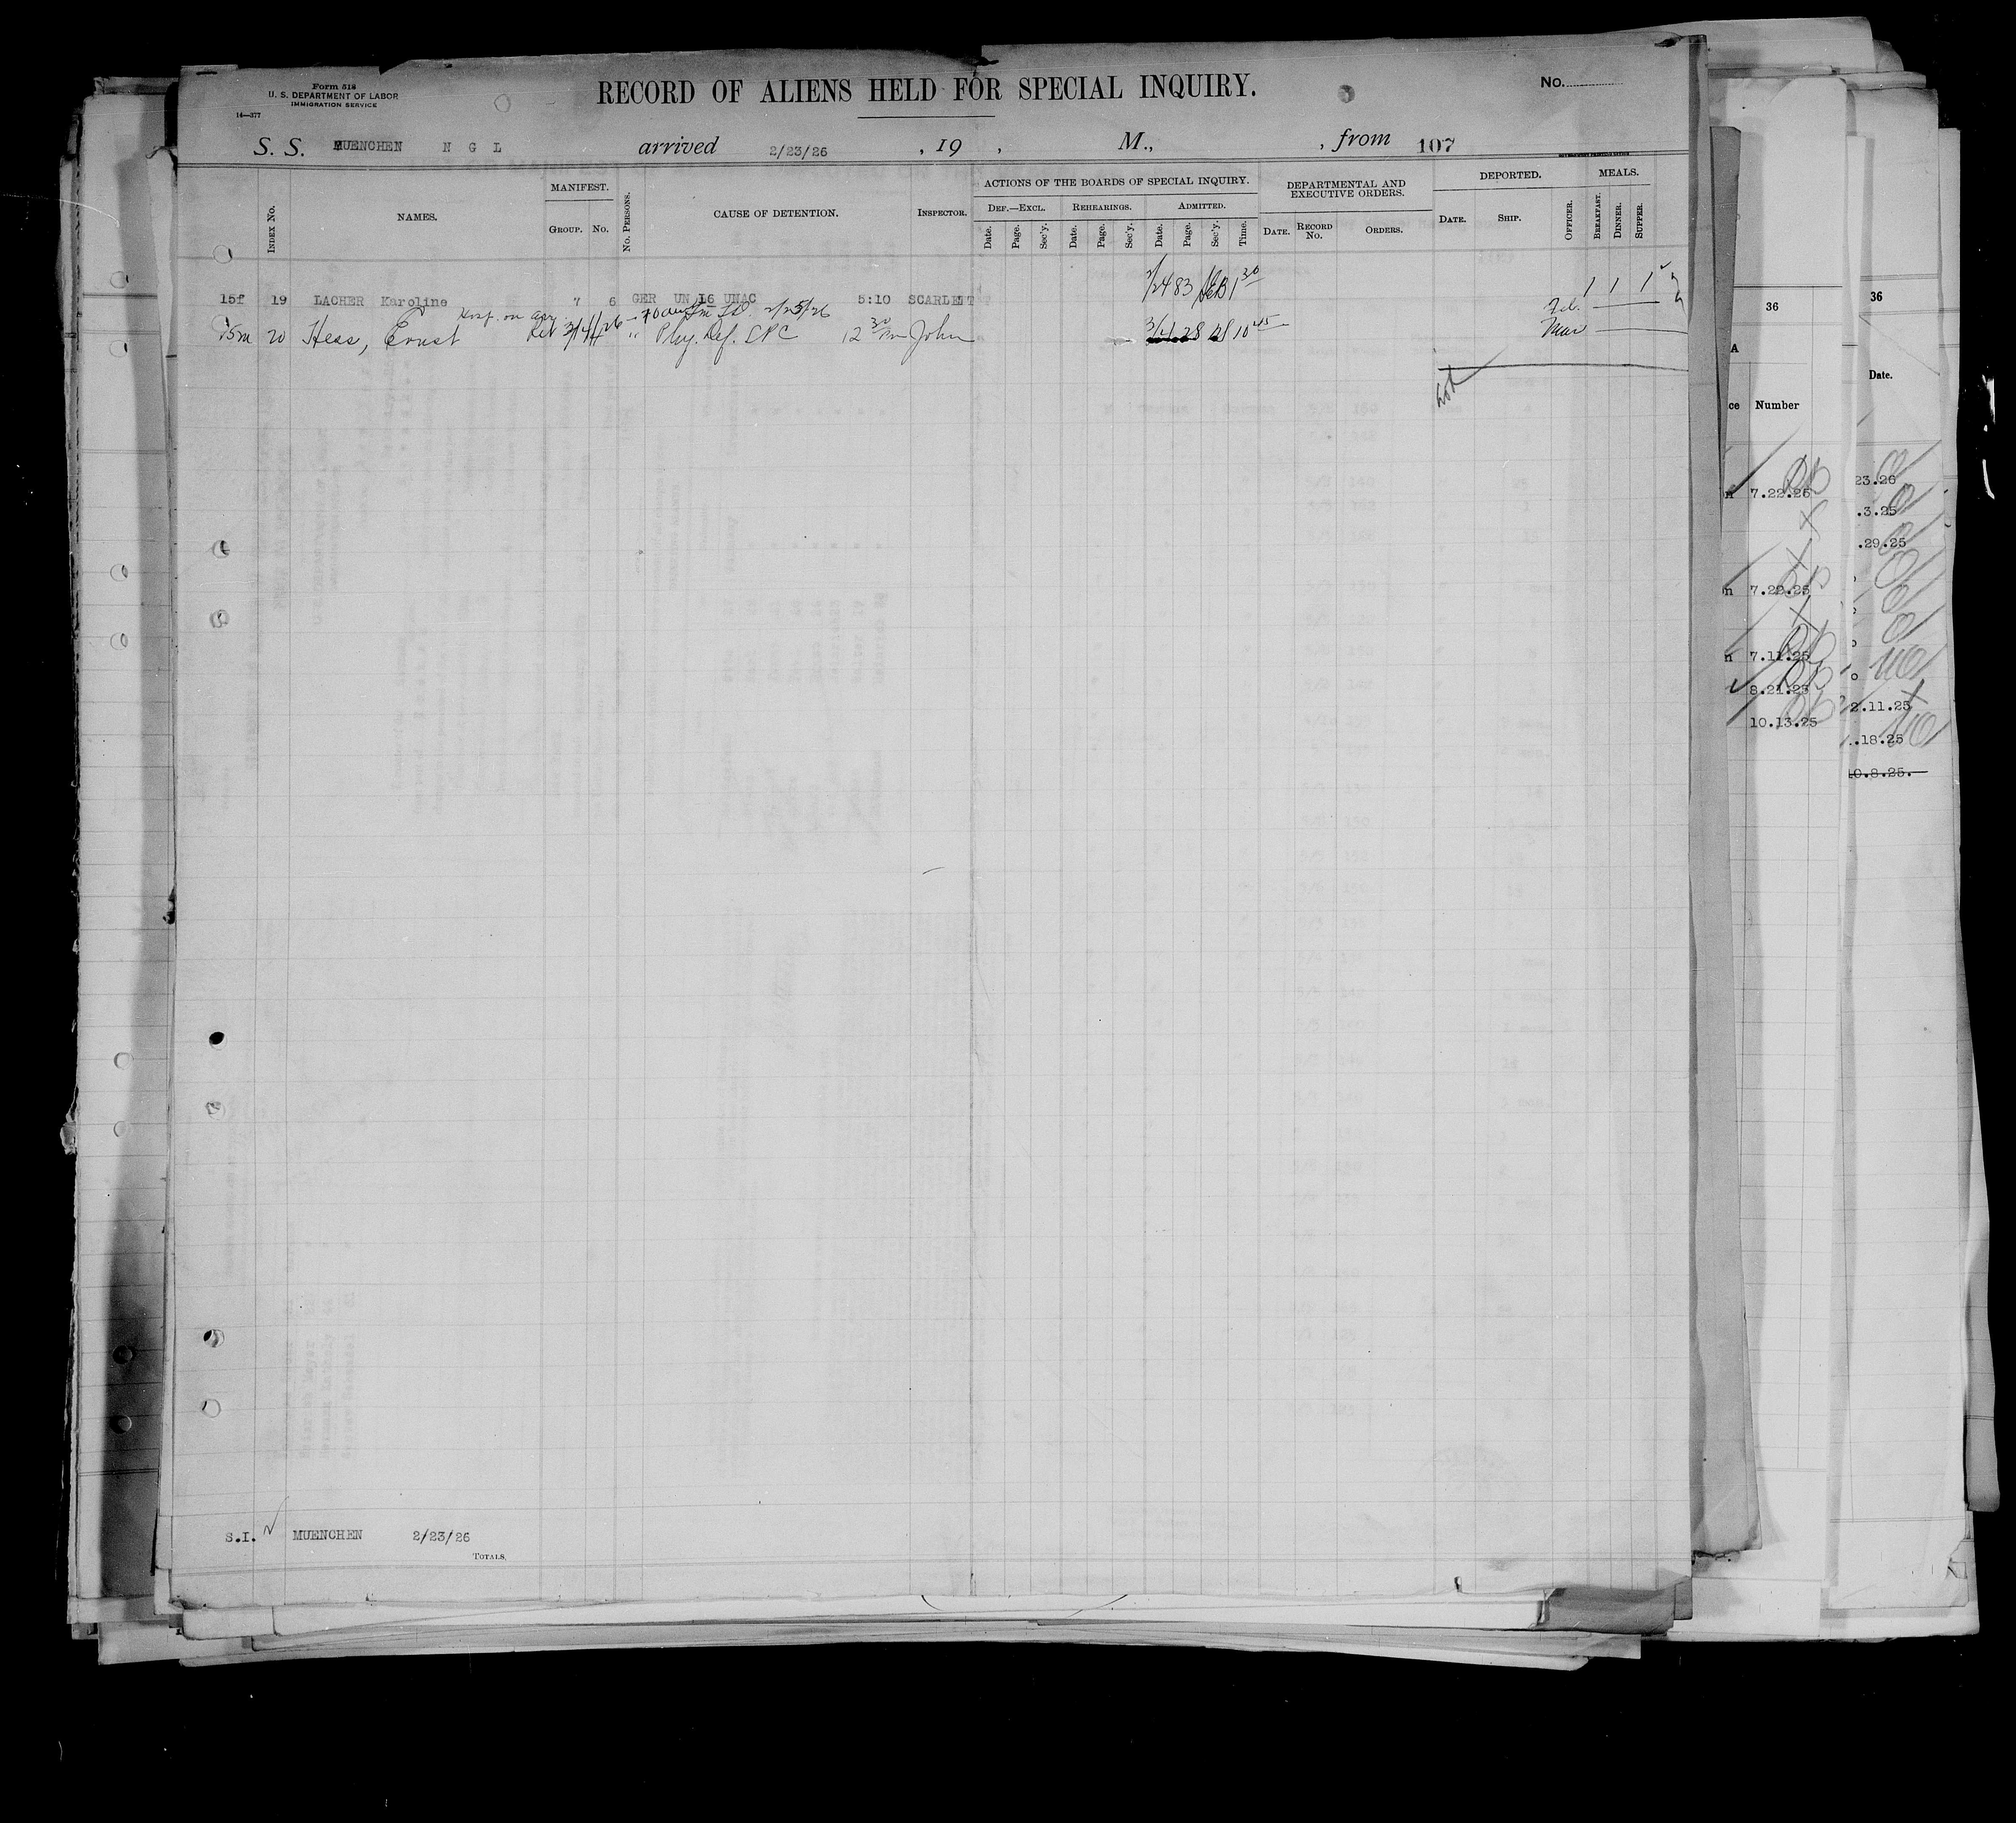 Form 518
U. S. DEPARTMENT OF LABOR
IMMIGRATION SERVICE
14—377
RECORD OF ALIENS HELD FOR SPECIAL INQUIRY.
No.
S. S. MUENCHEN N G L arrived 2/23/26, 19 , M., , from 107
INDEX No.
NAMES.
MANIFEST.
GROUP. No.
No. PERSONS.
CAUSE OF DETENTION.
INSPECTOR.
ACTIONS OF THE BOARDS OF SPECIAL INQUIRY.
DEF.—EXCL. REHEARINGS. ADMITTED.
Date. Page. Sec'y. Date. Page. Sec'y. Date. Page. Sec'y. Time.
DEPARTMENTAL AND
EXECUTIVE ORDERS.
DATE. RECORD No. ORDERS.
DEPORTED.
DATE. SHIP. OFFICER.
MEALS.
BREAKFAST. DINNER. SUPPER.
15f 19 LACHER Karoline 7 6 GER UN 16 UNAC 5:10 SCARLETT 2/24 83 1 30 1 1 1
Hosp. on arr. 2/25/26 Feb.
15m 20 Hess, Ernst 3/4/26 " Phy. Def. LPC 12 30 John 3/4 28 10 45 Mar
S.I. MUENCHEN 2/23/26
TOTALS.
36
A
ce Number
n 7.22.26
n 7.22.25
n 7.11.25
8.21.25
10.13.25
36
Date.
23.26
.3.25
.29.25
2.11.25
.18.25
10.8.25.